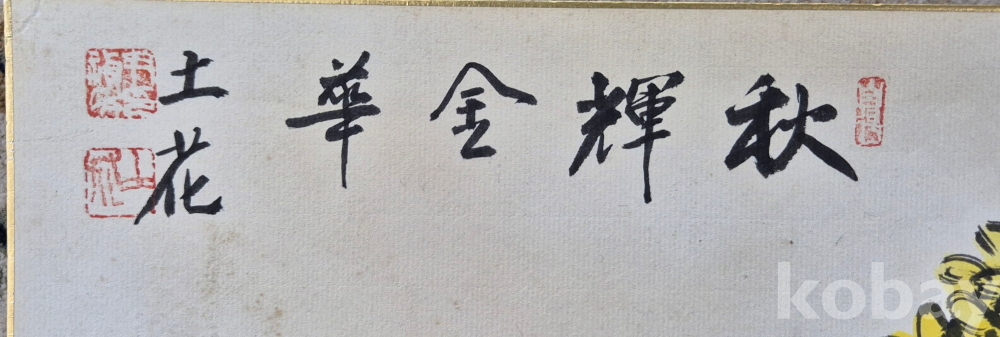 秋輝金華
土花
koba